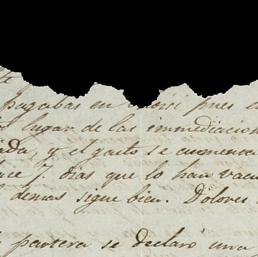 te
pagabas en pues
lugar de las immediacion
y el gasto se aumenta
dias que lo han vacu
demas sigue bien. Dolores
partera se declaró una